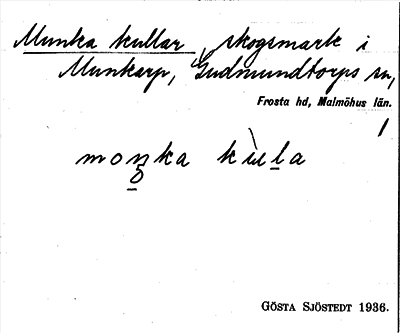 Munka kullar, skogsmark i
Munkarp, Gudmundtorps sn,
Frosta hd, Malmöhus län.
1
moŋka kùla
GÖSTA SJÖSTEDT 1936.